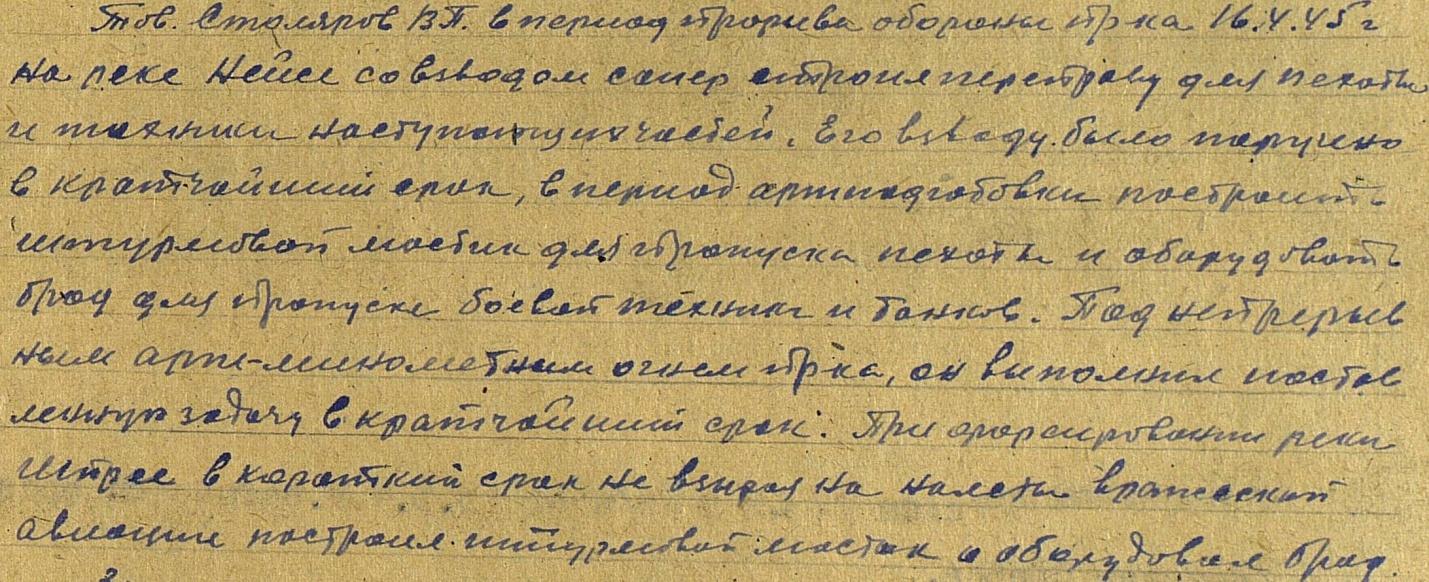 Тов. Столяров В.П. в период прорыва обороны пр-ка 16.4.45 г
на реке Нейсе со взводом сапер строил переправу для пехоты
и техники наступающих частей. Его взводу было поручено
в кратчайший срок, в период артподготовки построить
штурмовой мостик для пропуска пехоты и оборудовать
брод для пропуска боевой техники и танков. Под непрерыв
ным арт-минометным огнем пр-ка, он выполнил постав
ленную задачу в кратчайший срок. При форсировании реки
Шпрее в короткий срок не взирая на налеты вражеской
авиации построил штурмовой мостик и оборудовал брод.